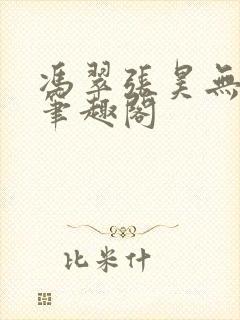 馮翠張昊無
筆趣閣
比米什